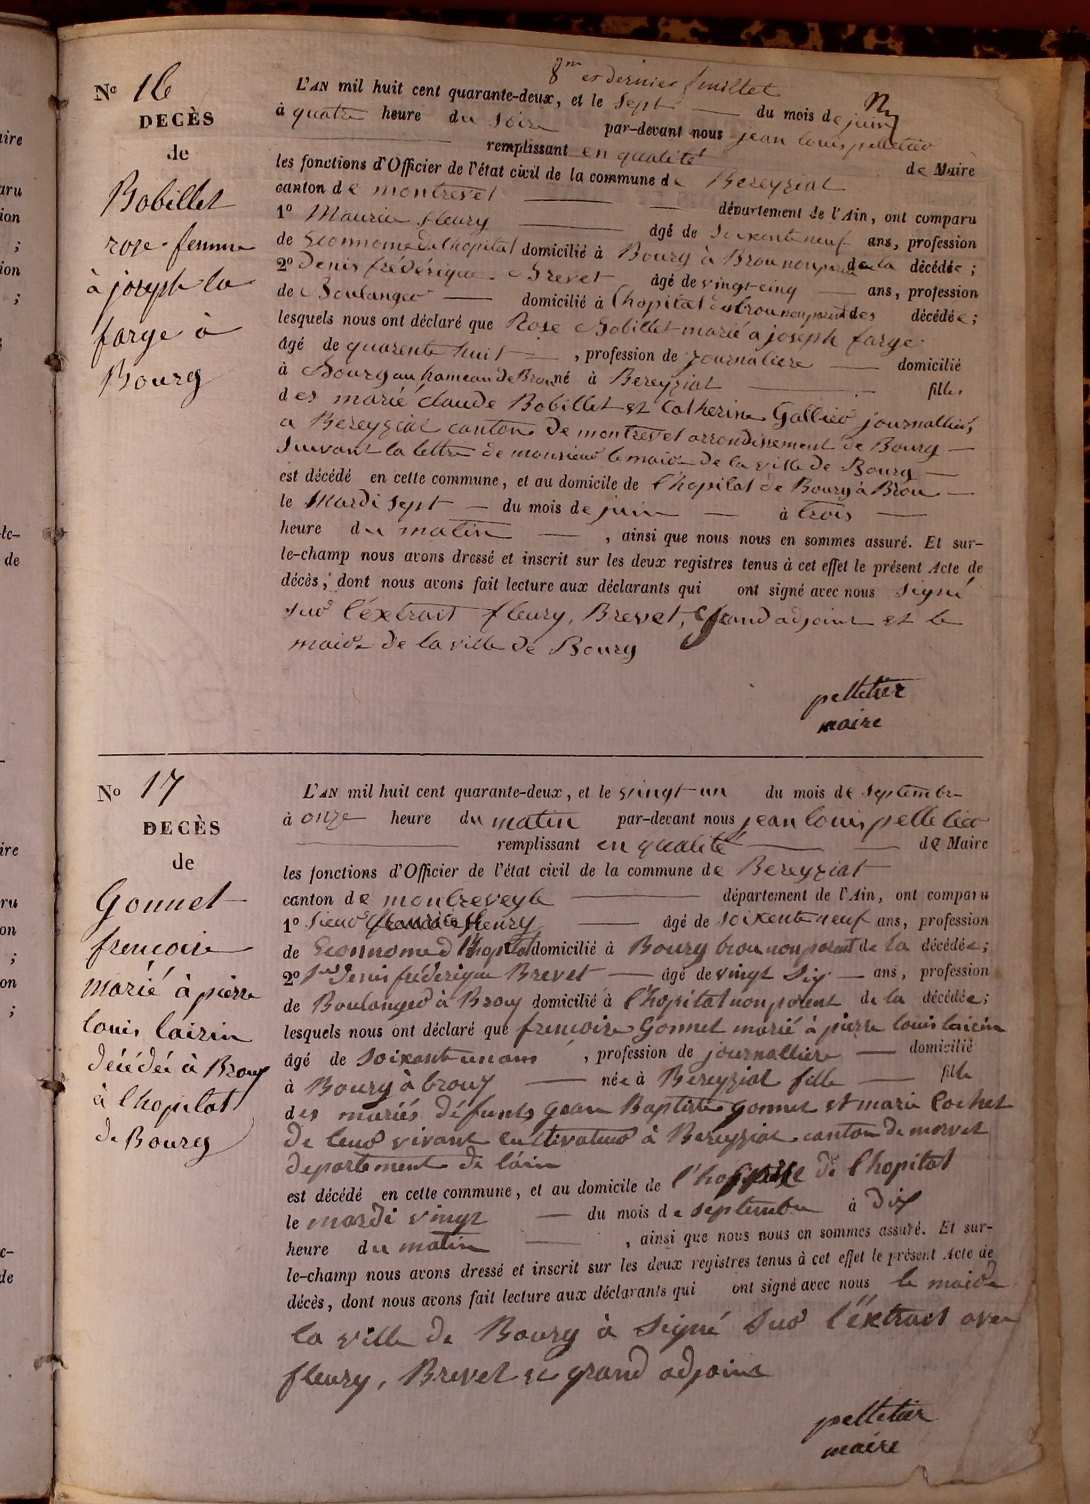 8me et dernier feuillet
No 16
DECÈS
de
Bobillet
rose femme
à joseph la
farge à
Bourg
L'AN mil huit cent quarante-deux, et le sept du mois de juin
à quatre heure du soire par-devant nous jean louis pelletier
remplissant en qualité de Maire
les fonctions d'Officier de l'état civil de la commune de Bereyziat
canton de montrevel département de l'Ain, ont comparu
1o Maurice fleury âgé de soixenteneuf ans, profession
de Econnome de l'hopital domicilié à Bourg à Brou non parent de la décédée;
2o Denis frédérique Brevet âgé de vingt cinq ans, profession
de Boulanger domicilié à l'hopital à brou non parent des décédée;
lesquels nous ont déclaré que Rose Bobillet marié a joseph farge
âgé de quarente huit , profession de journaliere domicilié
à Bourg au hameau de Brou né à Bereyziat fille
des marié claude Bobillet et Catherine Gallier journalliés
a Bereyziat canton de montrevel arrondissement de Bourg
Suivant la lettre de monsieur le maire de la ville de Bourg
est décédé en cette commune, et au domicile de l'hopital de Bourg à Brou
le Mardi sept du mois de juin à trois
heure du matin , ainsi que nous nous en sommes assuré. Et sur-
le-champ nous avons dressé et inscrit sur les deux registres tenus à cet effet le présent Acte de
décès, dont nous avons fait lecture aux déclarants qui ont signé avec nous signé
sur l'éxtrait fleury, Brevet, Grand adjoint et le
maire de la ville de Bourg
pelletier
maire
No 17
DECÈS
de
Gonnet
frencoise
marié à pierre
louis lairin
décédée à Brouy
à l'hopital
de Bourg
L'AN mil huit cent quarante-deux, et le vingt-un du mois de septembre
à onze heure du matin par-devant nous jean louis pelletier
remplissant en qualité de Maire
les fonctions d'Officier de l'état civil de la commune de Bereyziat
canton de montreveyle département de l'Ain, ont comparu
1o Sieur fleury âgé de soixenteneuf ans, profession
de Econnome d l'hopital domicilié à Bourg brou non parent de la décédée;
2o Sr denis frédérique Brevet âgé de vingt Six ans, profession
de Boulanger à Brouy domicilié à l'hopital non parent de la décédée;
lesquels nous ont déclaré que frencoise Gonnet marié à pierre louis lairin
âgé de soixante un ans , profession de journalliere domicilié
à Bourg à brouy née à Bereyziat fille fille
des mariés défunts jean Baptiste gonnet et marie Cochet
de leur vivant cultivateur à Bereyziat canton de morvel
departement de l'ain
est décédé en cette commune, et au domicile de l'hospise de l'hopital
le mardi vingt du mois de septembre à dix
heure du matin , ainsi que nous nous en sommes assuré. Et sur-
le-champ nous avons dressé et inscrit sur les deux registres tenus à cet effet le présent Acte de
décès, dont nous avons fait lecture aux déclarants qui ont signé avec nous le maire de
la ville de Bourg à signé sur l'éxtrait avec
fleury, Brevet et grand adjoint
pelletier
maire